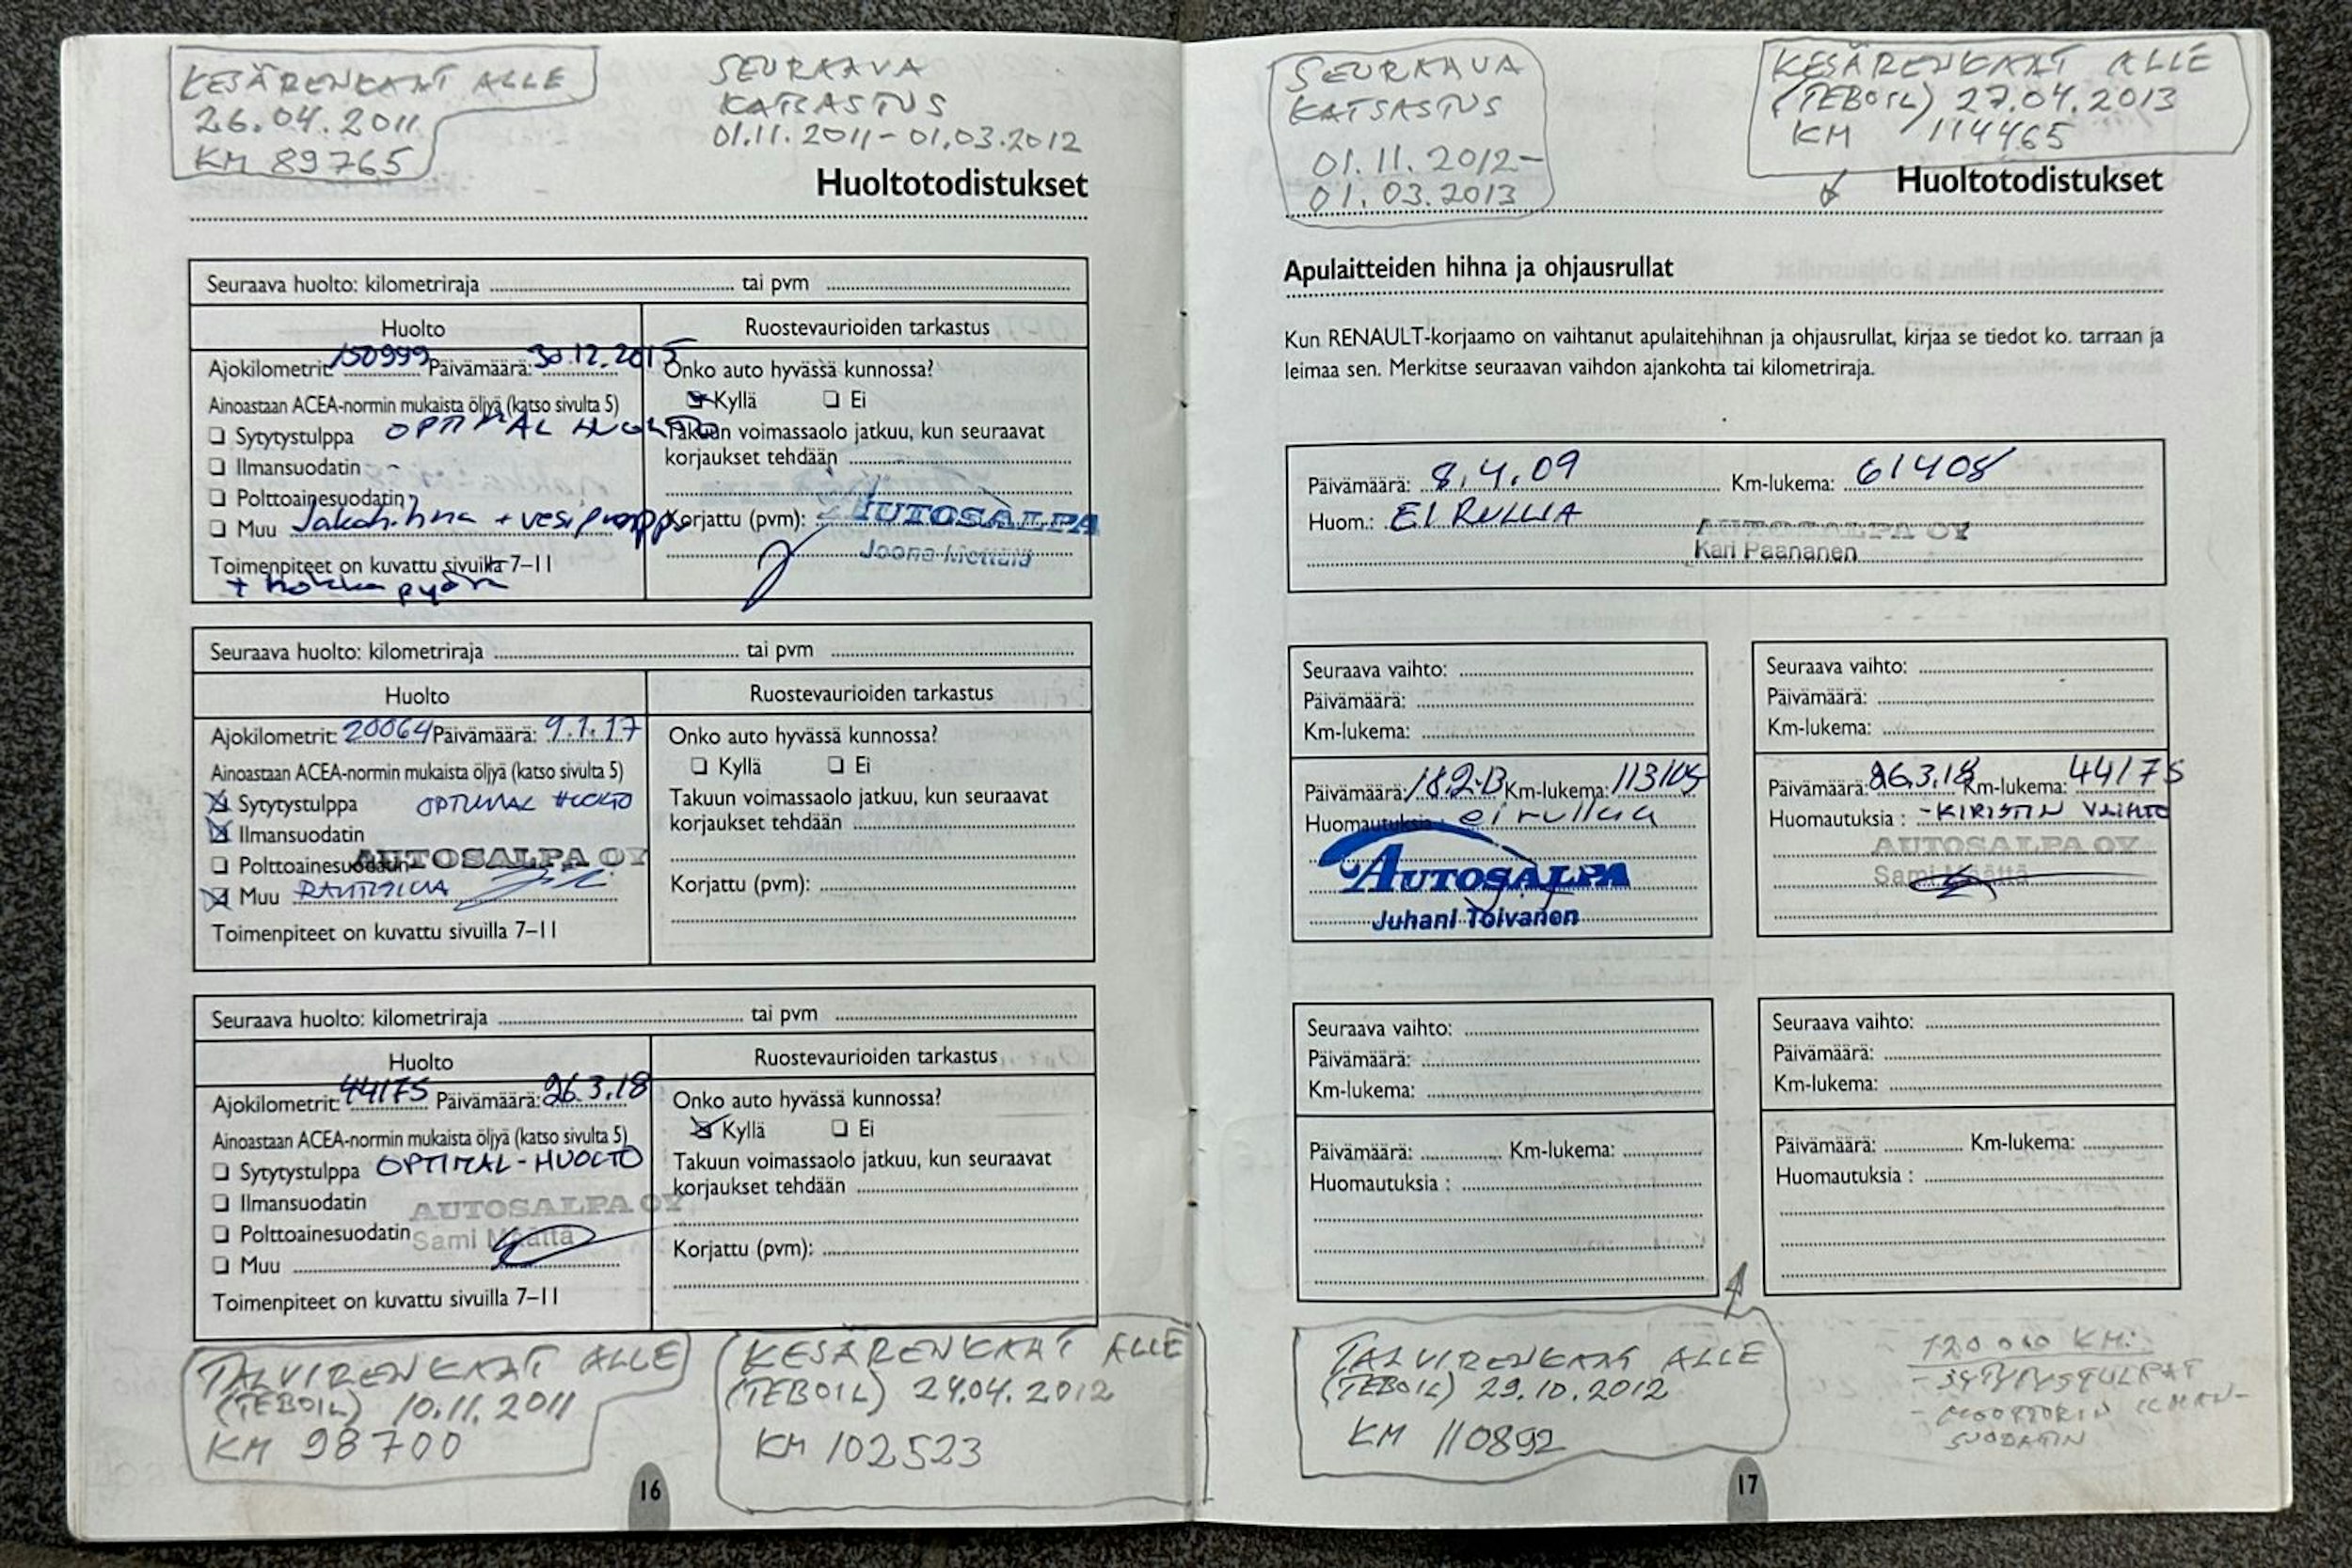 KESÄRENKAAT ALLE
26.04.2011
KM 89765
SEURAAVA
KATSASTUS
01.11.2011-01.03.2012
Huoltotodistukset
Seuraava huolto: kilometriraja tai pvm
Huolto
Ruostevaurioiden tarkastus
Ajokilometrit: 150999 Päivämäärä: 30.12.2015
Onko auto hyvässä kunnossa?
Ainoastaan ACEA-normin mukaista öljyä (katso sivulta 5)
Kyllä Ei
Sytytystulppa OPTIMAL HUOLTO
Takuun voimassaolo jatkuu, kun seuraavat
korjaukset tehdään
Ilmansuodatin
Polttoainesuodatin
Korjattu (pvm): AUTOSALPA
Muu Jakohihna + vesipumppu
Joona
Toimenpiteet on kuvattu sivuilla 7–11
+ hihna pyörä
Seuraava huolto: kilometriraja tai pvm
Huolto
Ruostevaurioiden tarkastus
Ajokilometrit: 20064 Päivämäärä: 9.1.17
Onko auto hyvässä kunnossa?
Ainoastaan ACEA-normin mukaista öljyä (katso sivulta 5)
Kyllä Ei
Sytytystulppa OPTIMAL HUOLTO
Takuun voimassaolo jatkuu, kun seuraavat
korjaukset tehdään
Ilmansuodatin
Polttoainesuodatin
AUTOSALPA OY
Muu RAITISILMA
Korjattu (pvm):
Toimenpiteet on kuvattu sivuilla 7–11
Seuraava huolto: kilometriraja tai pvm
Huolto
Ruostevaurioiden tarkastus
Ajokilometrit: 44175 Päivämäärä: 26.3.18
Onko auto hyvässä kunnossa?
Ainoastaan ACEA-normin mukaista öljyä (katso sivulta 5)
Kyllä Ei
Sytytystulppa OPTIMAL-HUOLTO
Takuun voimassaolo jatkuu, kun seuraavat
korjaukset tehdään
Ilmansuodatin
AUTOSALPA OY
Polttoainesuodatin
Sami Määttä
Korjattu (pvm):
Muu
Toimenpiteet on kuvattu sivuilla 7–11
TALVIRENKAAT ALLE
(TEBOIL) 10.11.2011
KM 98700
KESÄRENKAAT ALLE
(TEBOIL) 24.04.2012
KM 102523
16
SEURAAVA
KATSASTUS
01.11.2012-
01.03.2013
KESÄRENKAAT ALLE
(TEBOIL) 27.04.2013
KM 114465
Huoltotodistukset
Apulaitteiden hihna ja ohjausrullat
Kun RENAULT-korjaamo on vaihtanut apulaitehihnan ja ohjausrullat, kirjaa se tiedot ko. tarraan ja
leimaa sen. Merkitse seuraavan vaihdon ajankohta tai kilometriraja.
Päivämäärä: 8.4.09 Km-lukema: 61408
Huom.: EI RULLIA
AUTOSALPA OY
Kari Paananen
Seuraava vaihto:
Päivämäärä:
Km-lukema:
Päivämäärä: 18.2-13 Km-lukema: 113105
Huomautuksia: ei rullia
AUTOSALPA
Juhani Toivanen
Seuraava vaihto:
Päivämäärä:
Km-lukema:
Päivämäärä: 26.3.18 Km-lukema: 44175
Huomautuksia : -KIRISTIN VAIHTO
AUTOSALPA OY
Sami Määttä
Seuraava vaihto:
Päivämäärä:
Km-lukema:
Päivämäärä: Km-lukema:
Huomautuksia :
Seuraava vaihto:
Päivämäärä:
Km-lukema:
Päivämäärä: Km-lukema:
Huomautuksia :
TALVIRENKAAT ALLE
(TEBOIL) 29.10.2012
KM 110892
120 000 KM:
- SYTYTYSTULPAT
- MOOTTORIN ILMAN-
SUODATIN
17